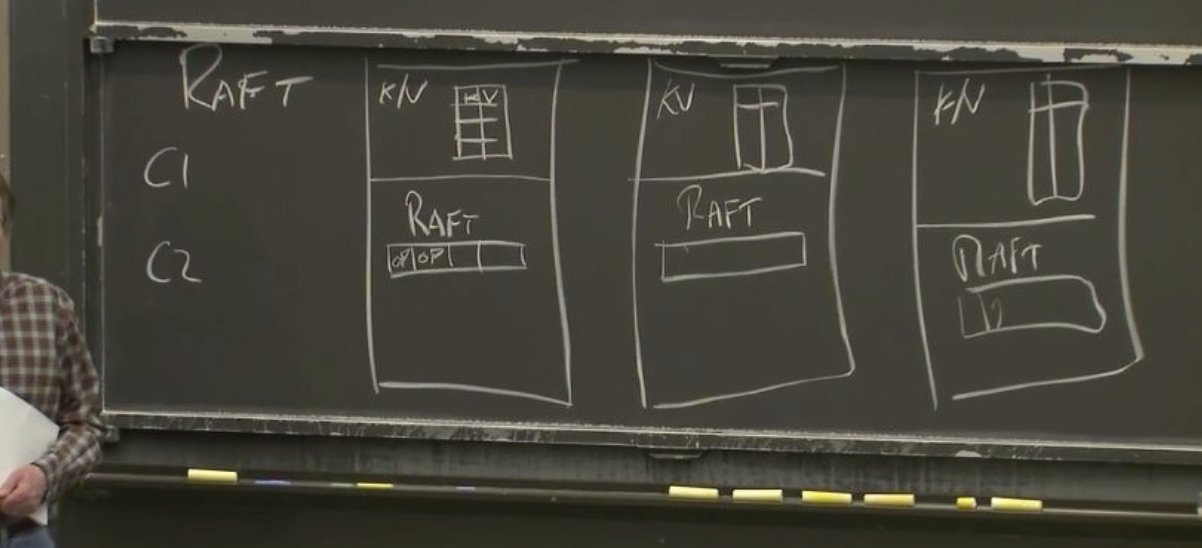 RAFT
C1
C2
KV
K V
RAFT
OP OP
KV
RAFT
KV
RAFT